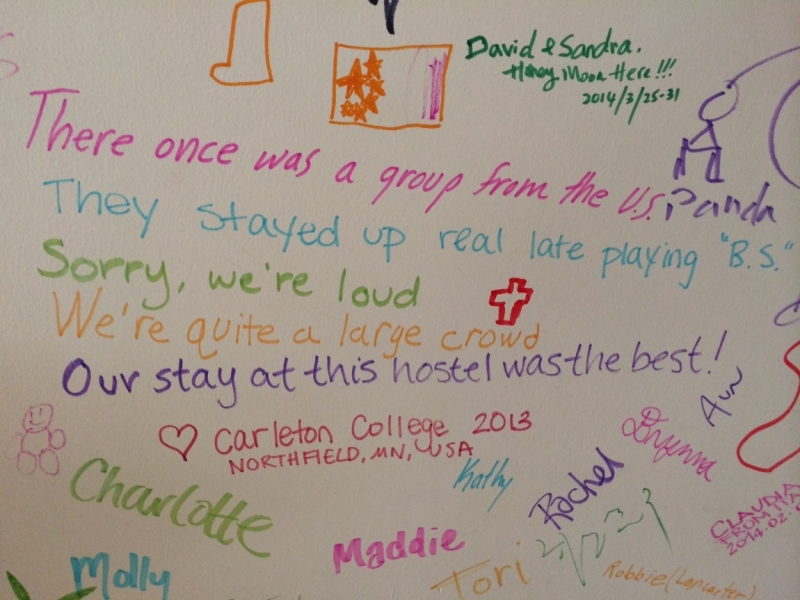 David & Sandra.
Honey Moon Here!!!
2014/3/25-31
There once was a group from the U.S.
Panda
They stayed up real late playing "B.S."
Sorry, we're loud
We're quite a large crowd
Our stay at this hostel was the best!
♡ Carleton College 2013
NORTHFIELD, MN, USA
Charlotte
Kathy
Rachel
Maddie
Molly
Tori
Robbie (Lancaster)
CLAUDIA
FROM ITA